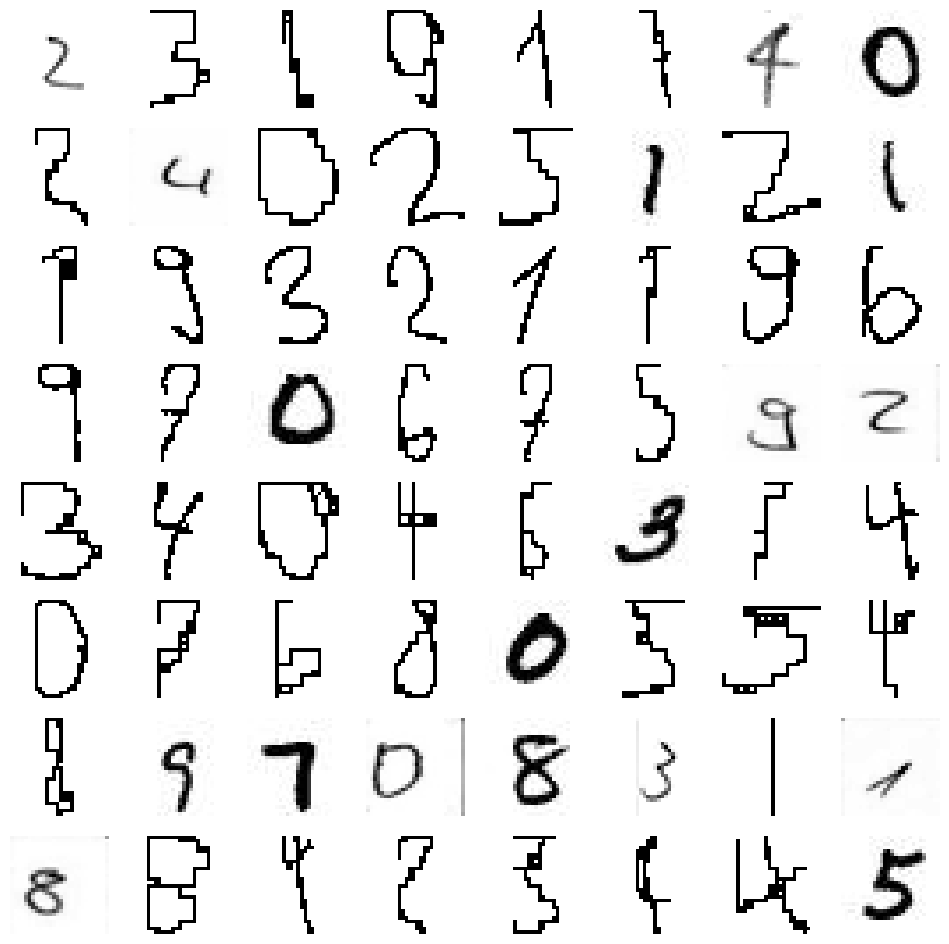 2 3 1 9 1 7 4 0
2 4 0 2 5 1 2 1
1 9 3 2 1 1 9 6
9 7 0 6 7 5 9 2
3 4 0 4 6 3 4
0 7 6 8 0 5 5 4
8 9 7 0 8 3 1 1
8 8 4 2 3 4 4 5